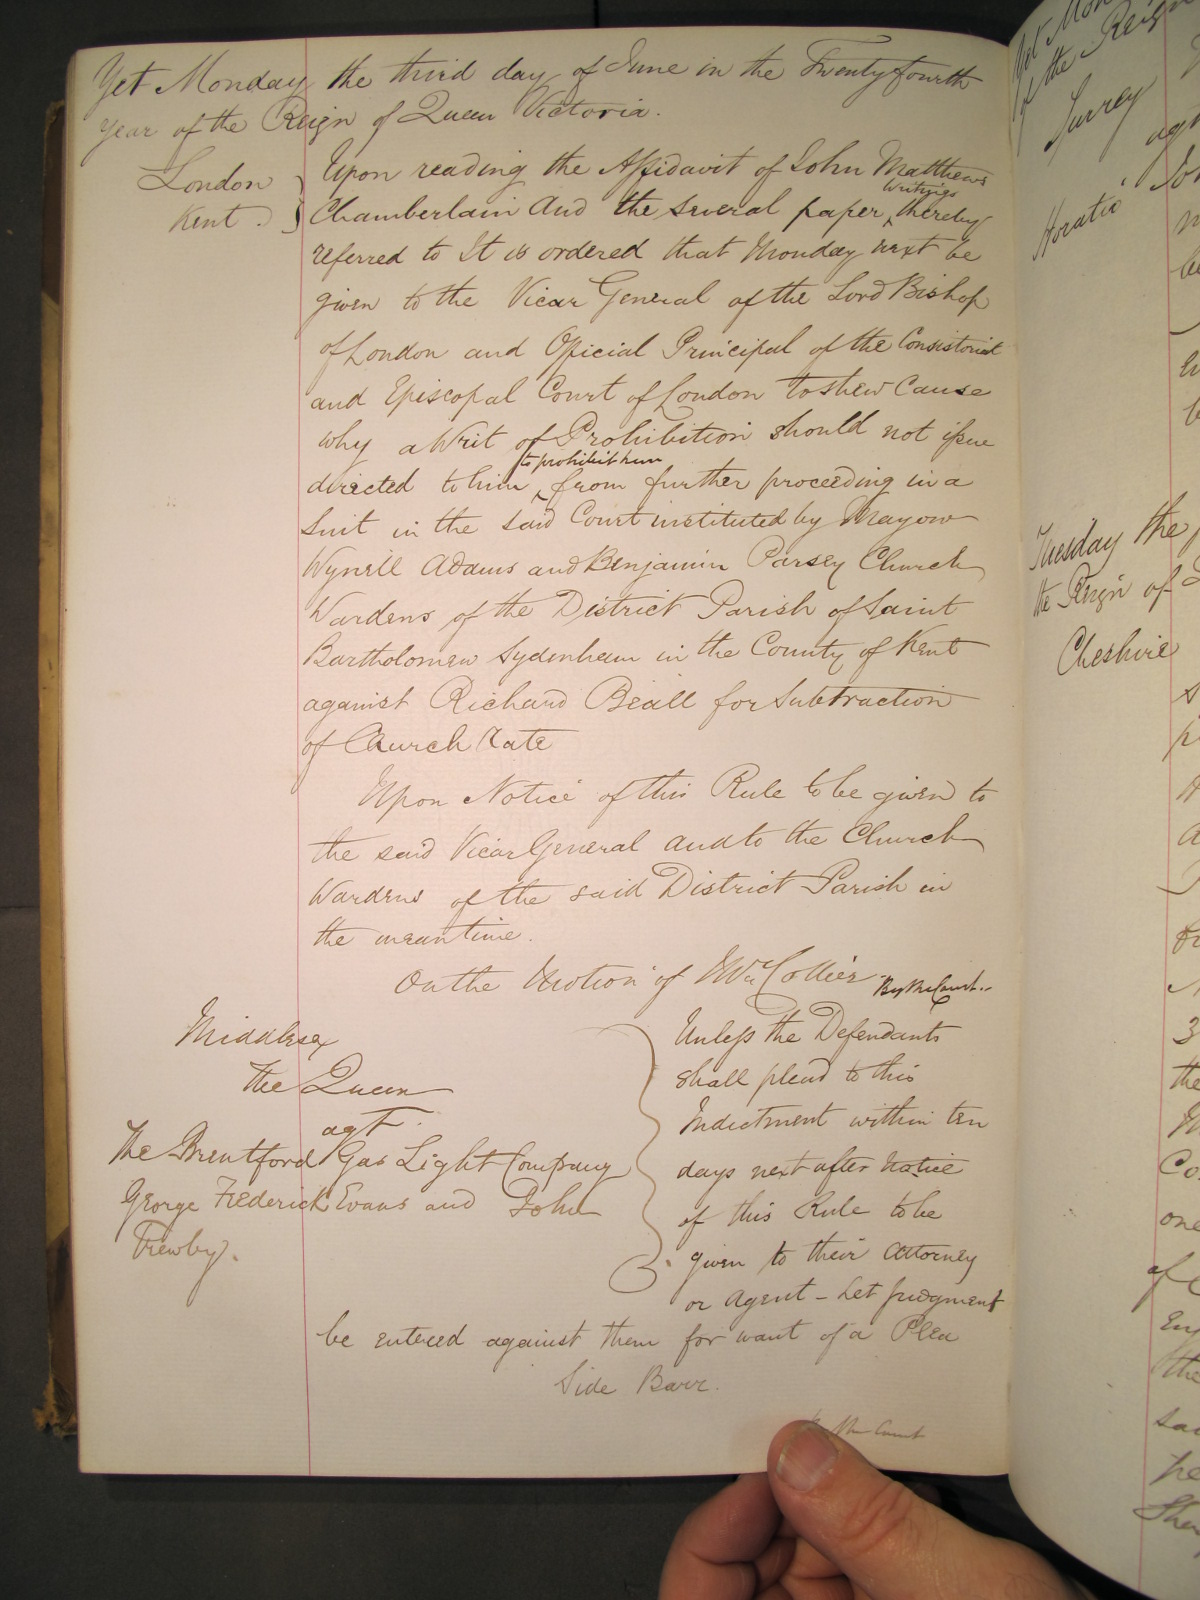 Yet Monday the third day of June in the Twenty fourth
year of the Reign of Queen Victoria.
London
Kent.
Upon reading the Affidavit of John Matthews
Writings
Chamberlain And the several paper ‸ thereby
referred to It is ordered that Monday next be
given to the Vicar General of the Lord Bishop
of London and Official Principal of the Consistorial
and Episcopal Court of London to shew Cause
why a Writ of Prohibition should not issue
to prohibit him
directed to him ‸ from further proceeding in a
Suit in the said Court instituted by Mayow
Wynell Adams and Benjamin Parsey Church
Wardens of the District Parish of Saint
Bartholomew Sydenham in the County of Kent
against Richard Beall for Subtraction
of Church Rate
Upon Notice of this Rule to be given to
the said Vicar General and to the Church
Wardens of the said District Parish in
the meantime.
On the Motion of Mr Collier By the Court..
Middlesex
The Queen
agt.
The Brentford Gas Light Company
George Frederick Evans and John
Trewby.
Unless the Defendants
shall plead to this
Indictment within ten
days next after Notice
of this Rule to be
given to their Attorney
or Agent - Let Judgment
be entered against them for want of a Plea
Side Barr.
the Court
of the Reign
Surrey
Horatio
Tuesday the
the Reign of
Cheshire